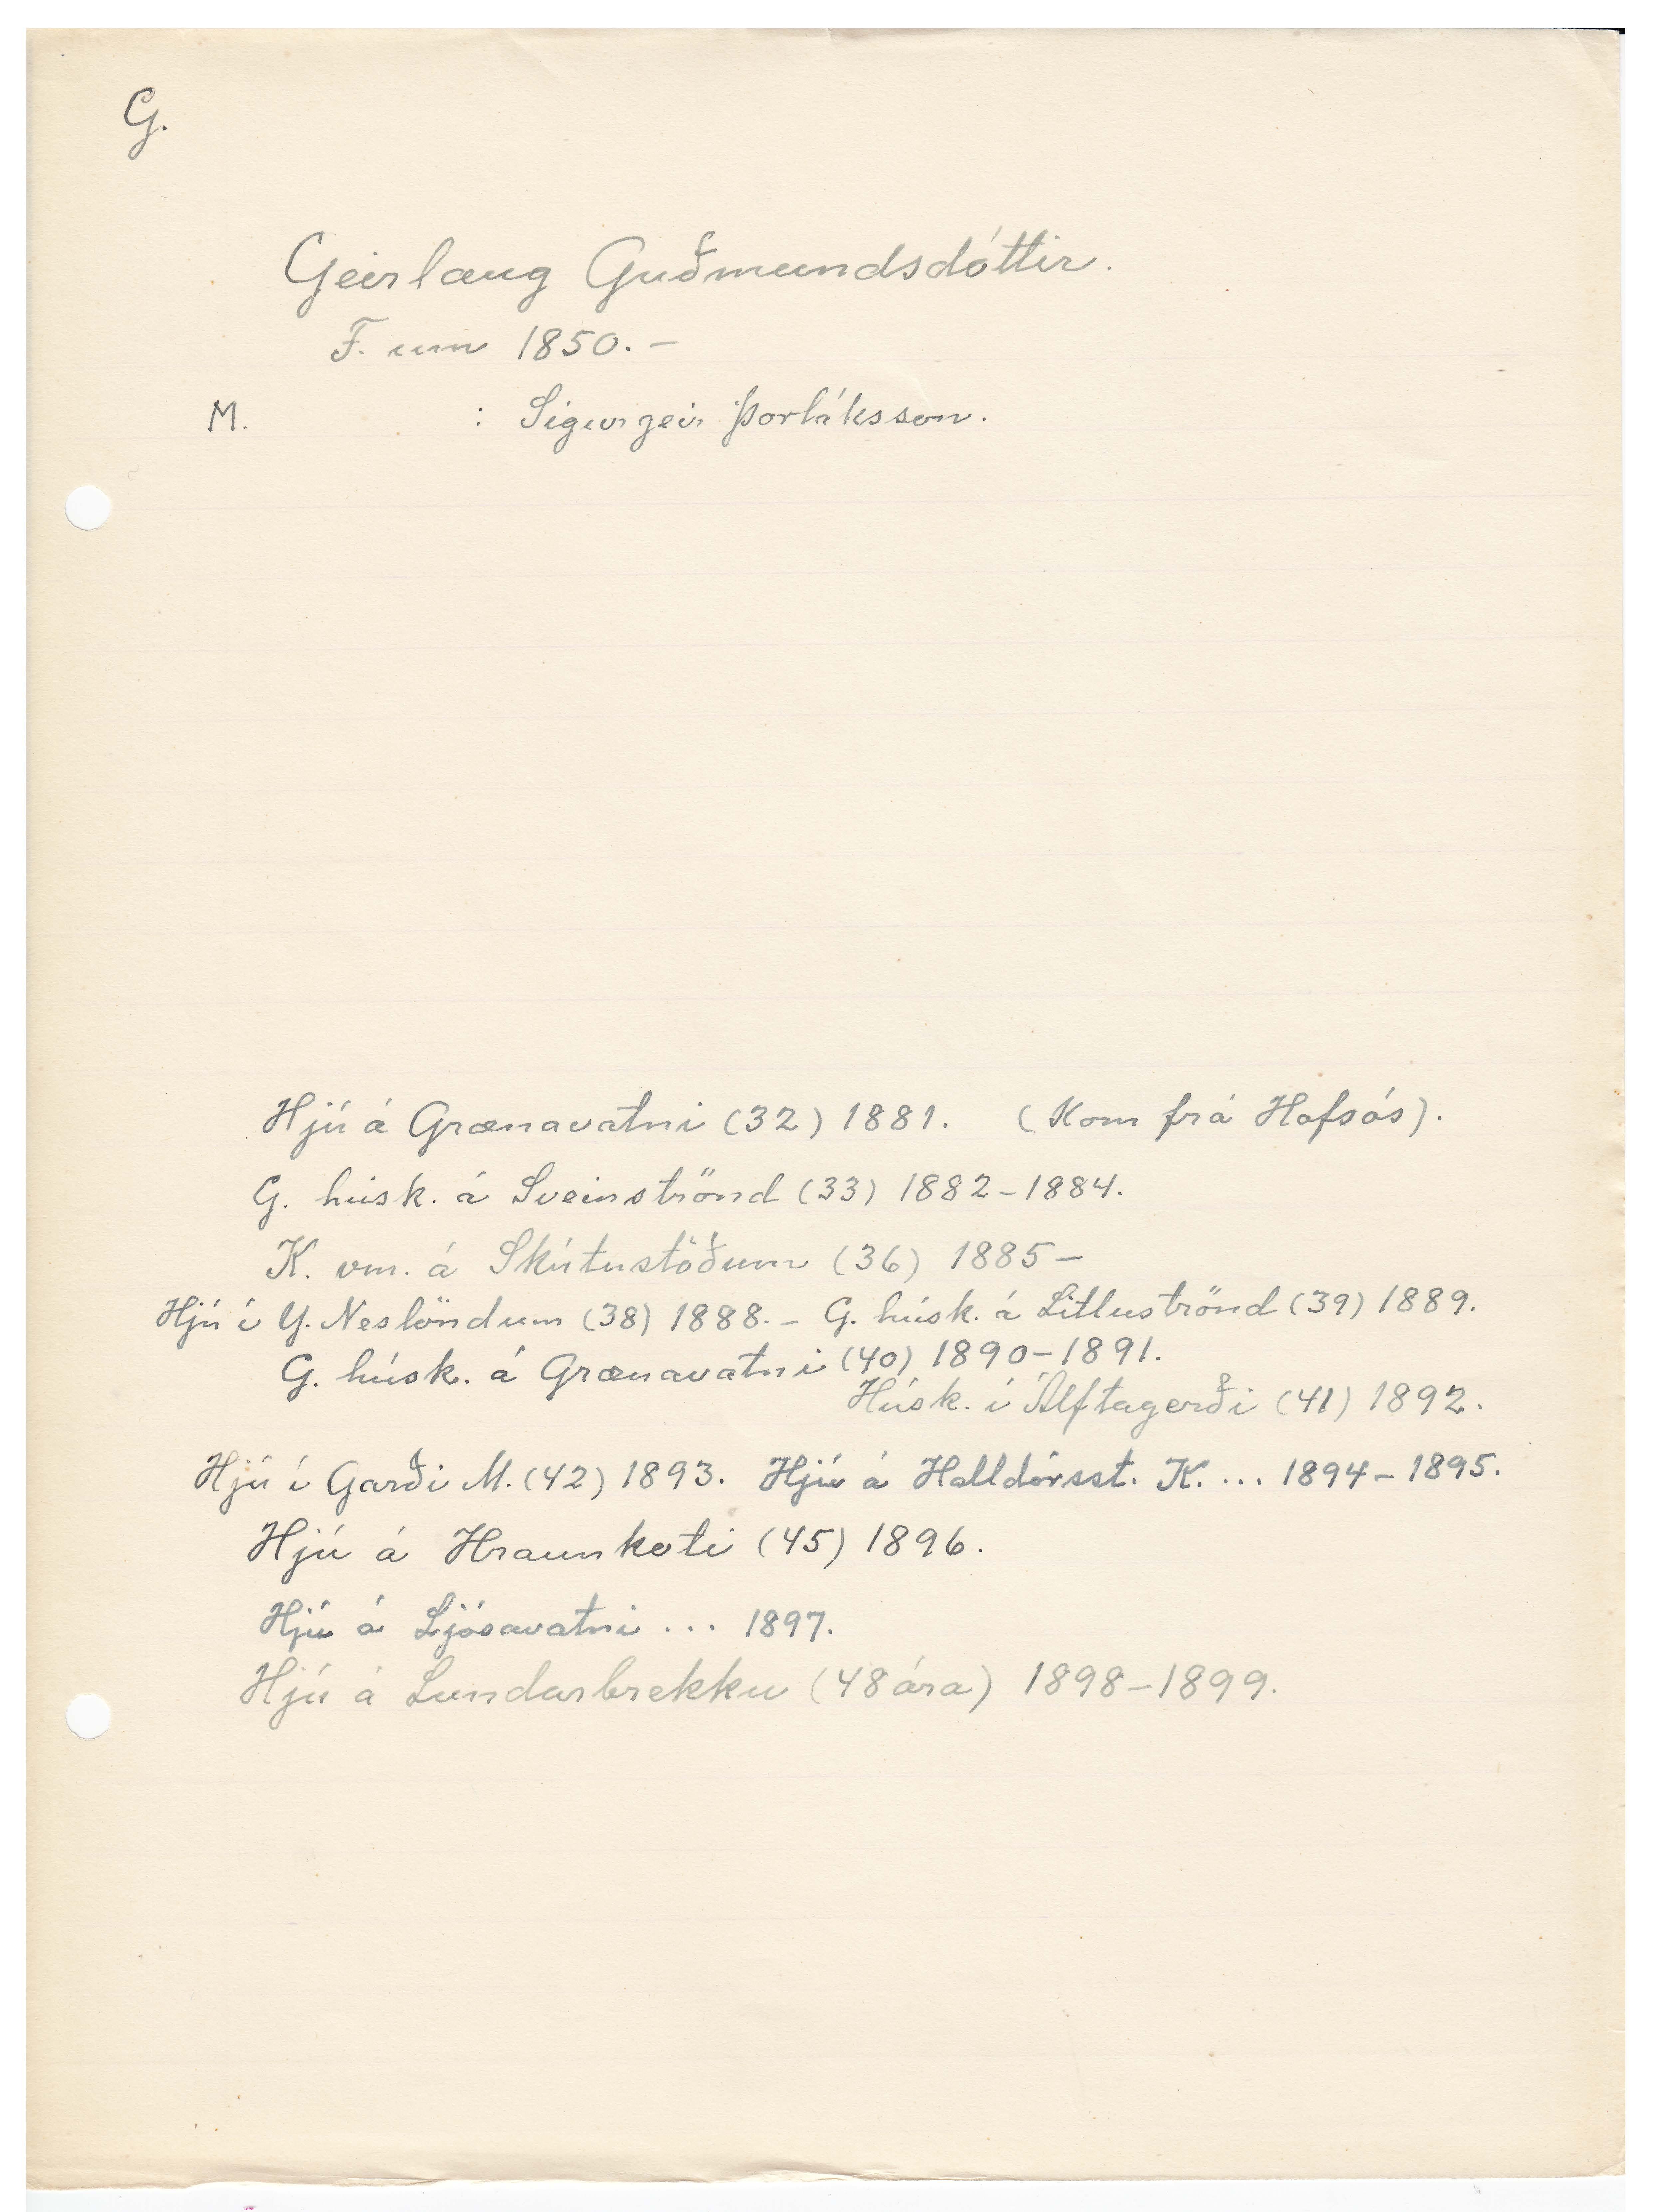 G.
Geirlaug Guðmundsdóttir.
F. um 1850. –
M. : Sigurgeir Þorláksson.
Hjú á Grænavatni (32) 1881. (Kom frá Hofsós).
G. húsk. á Sveinströnd (33) 1882-1884.
K. vm. á Skútustöðum (36) 1885 –
Hjú í Y. Neslöndum (38) 1888. – G. húsk. á Litluströnd (39) 1889.
G. húsk. á Grænavatni (40) 1890-1891.
Húsk. í Álftagerði (41) 1892.
Hjú í Garði M. (42) 1893. Hjú á Halldórsst. K. ... 1894-1895.
Hjú á Hraunkoti (45) 1896.
Hjú á Ljósavatni ... 1897.
Hjú á Lundarbrekku (48 ára) 1898-1899.